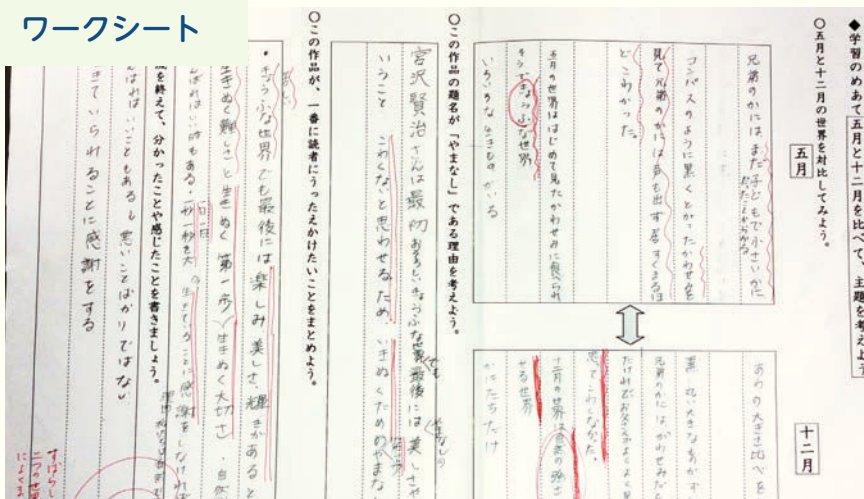 ワークシート
◆学習のめあて 五月と十二月を比べて、主題を考えよう
〇五月と十二月の世界を対比してみよう。
五月
兄弟のかには、まだ子どもで小さいかに
コンパスのように黒くとがったかわせみを
見て兄弟のかには声も出ず居すくまるほ
どこわかった。
五月の世界ははじめて見たかわせみに食べられ
そうできょうふな世界
いろいろな生きものがいる
十二月
あわの大きさ比べを
黒い丸い大きなものが
兄弟のかには、かわせみだと
たけれどお父さんがよくよく見
思ってこわくなかった。
十二月の世界は自然の
せる世界
かにたちだけ
〇この作品の題名が「やまなし」である理由を考えよう。
宮沢賢治さんは最初おそろしいきょうふな世界最後には美しさや
いうこと こわくないと思わせるため、いきぬくためのやまな
〇この作品が、一番に読者にうったえかけたいことをまとめよう。
・きょうふな世界でも最後には楽しみ美しさ、輝きがあると
生きぬく難しさと生きぬく第一歩(生きぬく大切さ・自然
んばればいい時もある・一秒一秒を大 の生きていることに感謝をしなければ
を終えて、分かったことや感じたことを書きましょう。
んばればいいこともあるし悪いことばかりではない
きていられることに感謝をする
すばらし
二つの世
によくま